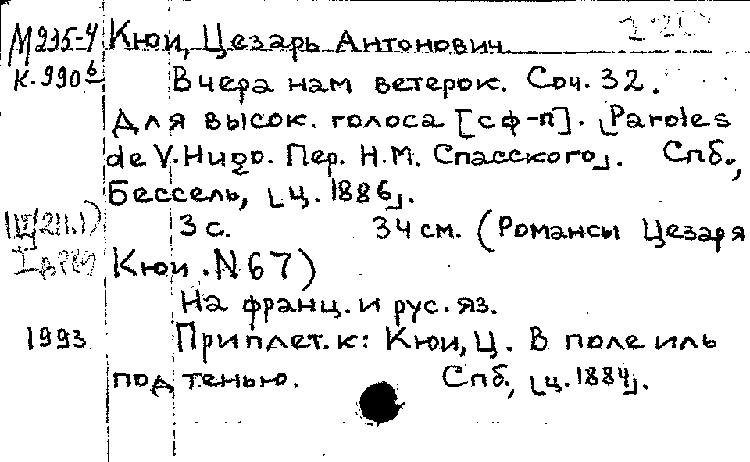 М 295-4 Кюи, Цезарь Антонович
К.990б Вчера нам ветерок. Соч. 32.
Для высок. голоса [с ф-п]. ⌊Paroles
de V. Hugo. Пер. Н.М. Спасского⌋. Спб.,
Бессель, ⌊ц. 1886⌋.
3 с. 34 см. (Романсы Цезаря
Кюи. N 67)
На франц. и рус. яз.
1993 Приплет. к: Кюи, Ц. В поле иль
под тенью. Спб., ⌊ц. 1884⌋.